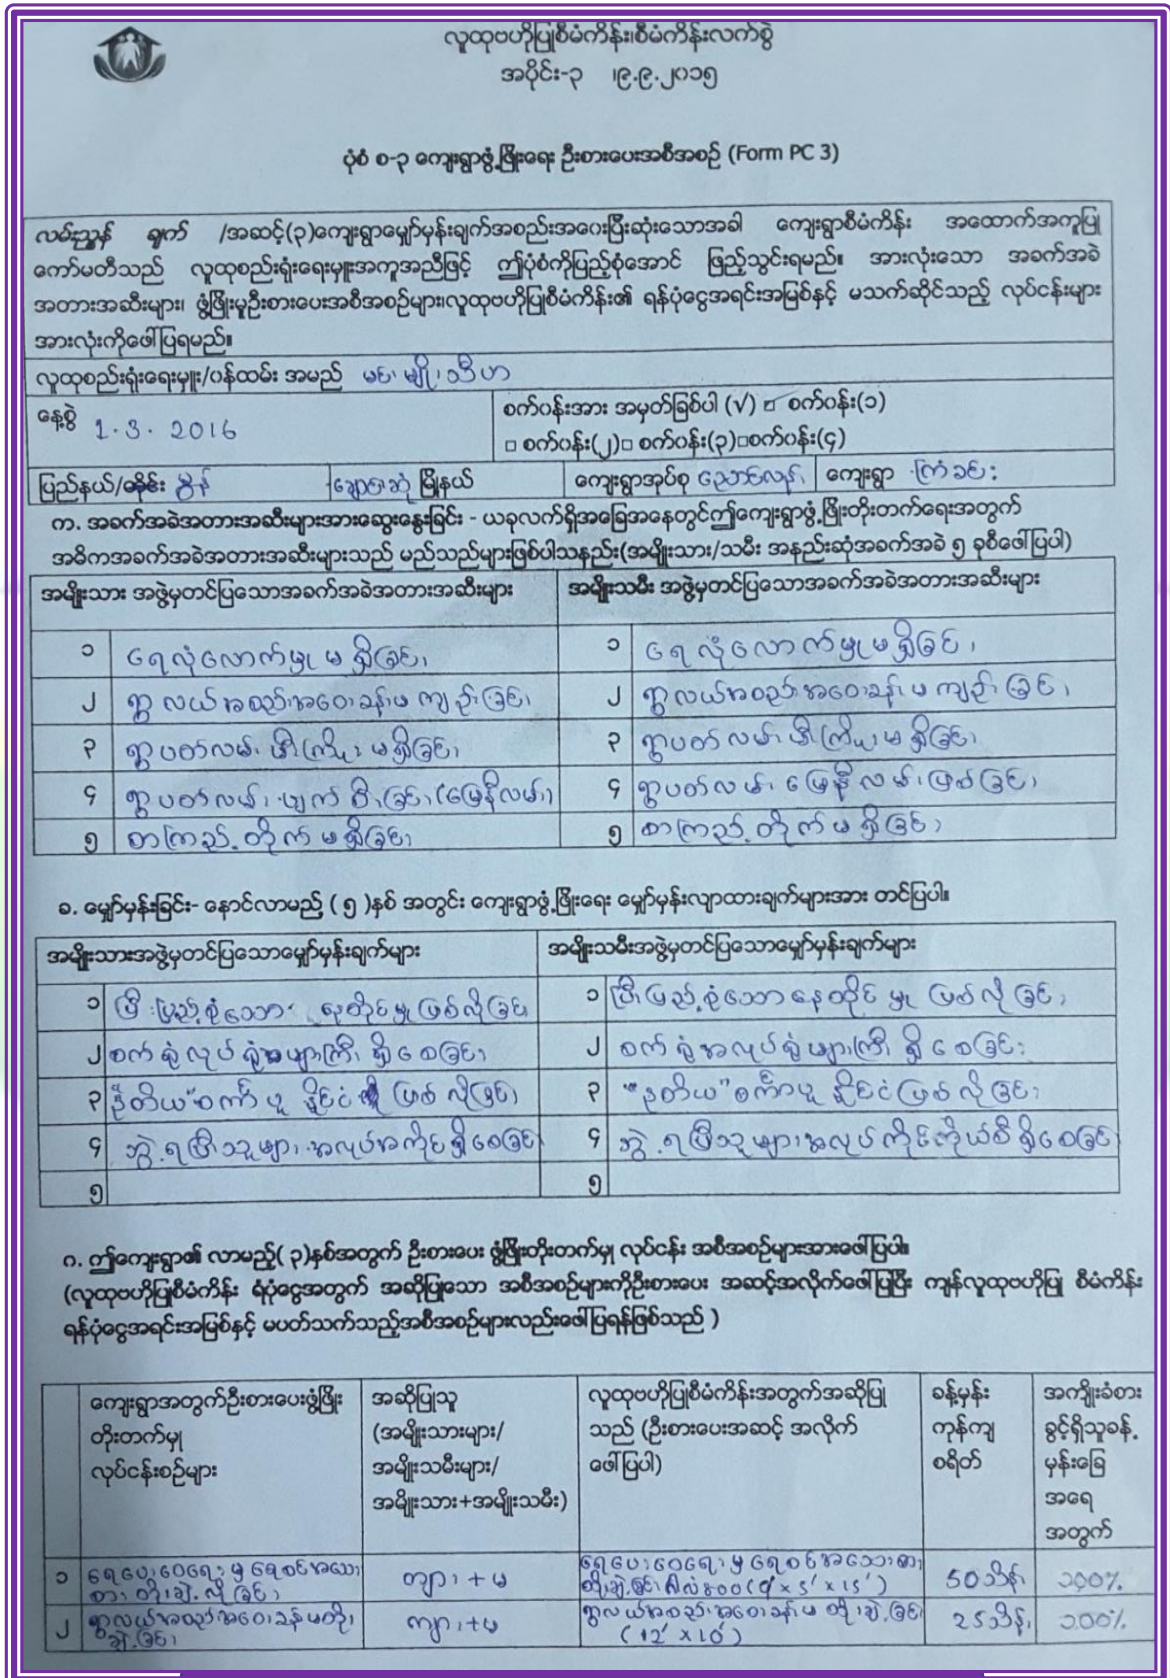 လူထုဗဟိုပြုစီမံကိန်း၊စီမံကိန်းလက်စွဲ
အပိုင်း-၃ ၊၉.၉.၂၀၁၅
ပုံစံ စ-၃ ကျေးရွာဖွံ့ဖြိုးရေး ဦးစားပေးအစီအစဉ် (Form PC 3)
လမ်းညွှန် ချက် /အဆင့်(၃)ကျေးရွာမျှော်မှန်းချက်အစည်းအဝေးပြီးဆုံးသောအခါ ကျေးရွာစီမံကိန်း အထောက်အကူပြု
ကော်မတီသည် လူထုစည်းရုံးရေးမှူးအကူအညီဖြင့် ဤပုံစံကိုပြည့်စုံအောင် ဖြည့်သွင်းရမည်။ အားလုံးသော အခက်အခဲ
အတားအဆီးများ၊ ဖွံ့ဖြိုးမှုဦးစားပေးအစီအစဉ်များ၊လူထုဗဟိုပြုစီမံကိန်း၏ ရန်ပုံငွေအရင်းအမြစ်နှင့် မသက်ဆိုင်သည့် လုပ်ငန်းများ
အားလုံးကိုဖေါ်ပြရမည်။
လူထုစည်းရုံးရေးမှူး/ဝန်ထမ်း အမည် မင်းမျိုးသီဟ
နေ့စွဲ 1.3.2016
စက်ဝန်းအား အမှတ်ခြစ်ပါ (√) □ စက်ဝန်း(၁)
□ စက်ဝန်း(၂)□ စက်ဝန်း(၃)□စက်ဝန်း(၄)
ပြည်နယ်/တိုင်း မွန် ချောင်းဆုံ မြို့နယ် ကျေးရွာအုပ်စု ညောင်လန်း ကျေးရွာ ကြံခင်း
က. အခက်အခဲအတားအဆီးများအားဆွေးနွေးခြင်း - ယခုလက်ရှိအခြေအနေတွင်ဤကျေးရွာဖွံ့ဖြိုးတိုးတက်ရေးအတွက်
အဓိကအခက်အခဲအတားအဆီးများသည် မည်သည်များဖြစ်ပါသနည်း(အမျိုးသား/သမီး အနည်းဆုံးအခက်အခဲ ၅ ခုစီဖေါ်ပြပါ)
အမျိုးသား အဖွဲ့မှတင်ပြသောအခက်အခဲအတားအဆီးများ အမျိုးသမီး အဖွဲ့မှတင်ပြသောအခက်အခဲအတားအဆီးများ
၁ ရေလုံလောက်မှုမရှိခြင်း ၁ ရေလုံလောက်မှုမရှိခြင်း
၂ ရွာလယ်အစည်းအဝေးခန်းမကျဉ်းခြင်း ၂ ရွာလယ်အစည်းအဝေးခန်းမကျဉ်းခြင်း
၃ ရွာပတ်လမ်း မီးကြိုး မရှိခြင်း ၃ ရွာပတ်လမ်း မီးကြိုးမရှိခြင်း
၄ ရွာပတ်လမ်း ပျက်စီးခြင်း (မြေနီလမ်း) ၄ ရွာပတ်လမ်း မြေနီလမ်းဖြစ်ခြင်း
၅ စာကြည့်တိုက်မရှိခြင်း ၅ စာကြည့်တိုက်မရှိခြင်း
ခ. မျှော်မှန်းခြင်း- နောင်လာမည် ( ၅ )နှစ် အတွင်း ကျေးရွာဖွံ့ဖြိုးရေး မျှော်မှန်းလျာထားချက်များအား တင်ပြပါ။
အမျိုးသားအဖွဲ့မှတင်ပြသောမျှော်မှန်းချက်များ အမျိုးသမီးအဖွဲ့မှတင်ပြသောမျှော်မှန်းချက်များ
၁ ပြီးပြည့်စုံသော နေထိုင်မှုဖြစ်လိုခြင်း ၁ ပြီးပြည့်စုံသောနေထိုင်မှု ဖြစ်လိုခြင်း
၂ စက်ရုံလုပ်ရုံများကြီး ရှိစေခြင်း ၂ စက်ရုံအလုပ်ရုံများကြီး ရှိစေခြင်း
၃ ဒုတိယ"စင်္ကာပူ နိုင်ငံ ဖြစ်လိုခြင်း ၃ "ဒုတိယ"စင်္ကာပူ နိုင်ငံဖြစ်လိုခြင်း
၄ ဘွဲ့ရပြီးသူများ အလုပ်အကိုင်ရှိစေခြင်း ၄ ဘွဲ့ရပြီးသူများအလုပ်ကိုင်ကိုယ်စီရှိစေခြင်း
၅ ၅
ဂ. ဤကျေးရွာ၏ လာမည့်( ၃)နှစ်အတွက် ဦးစားပေး ဖွံ့ဖြိုးတိုးတက်မှု လုပ်ငန်း အစီအစဉ်များအားဖေါ်ပြပါ။
(လူထုဗဟိုပြုစီမံကိန်း ရံပုံငွေအတွက် အဆိုပြုသော အစီအစဉ်များကိုဦးစားပေး အဆင့်အလိုက်ဖေါ်ပြပြီး ကျန်လူထုဗဟိုပြု စီမံကိန်း
ရန်ပုံငွေအရင်းအမြစ်နှင့် မပတ်သက်သည့်အစီအစဉ်များလည်းဖေါ်ပြရန်ဖြစ်သည် )
ကျေးရွာအတွက်ဦးစားပေးဖွံ့ဖြိုး
တိုးတက်မှု
လုပ်ငန်းစဉ်များ
အဆိုပြုသူ
(အမျိုးသားများ/
အမျိုးသမီးများ/
အမျိုးသား+အမျိုးသမီး)
လူထုဗဟိုပြုစီမံကိန်းအတွက်အဆိုပြု
သည် (ဦးစားပေးအဆင့် အလိုက်
ဖေါ်ပြပါ)
ခန့်မှန်း
ကုန်ကျ
စရိတ်
အကျိုးခံစား
ခွင့်ရှိသူခန့်
မှန်းခြေ
အရေ
အတွက်
၁ ရေပေးဝေရေးမှ ရေစင်အသေး
စား တိုးချဲ့လိုခြင်း
ကျား + မ
ရေပေးဝေရေးမှ ရေစင်အသေးစား
တိုးချဲ့ခြင်း (9' × 5' × 15')
50သိန်း
100%
၂ ရွာလယ်အစည်းအဝေးခန်းမတိုး
ချဲ့ခြင်း
ကျား+မ
ရွာလယ်အစည်းအဝေးခန်းမ တိုးချဲ့ခြင်း
(12' × 10')
25သိန်း
100%